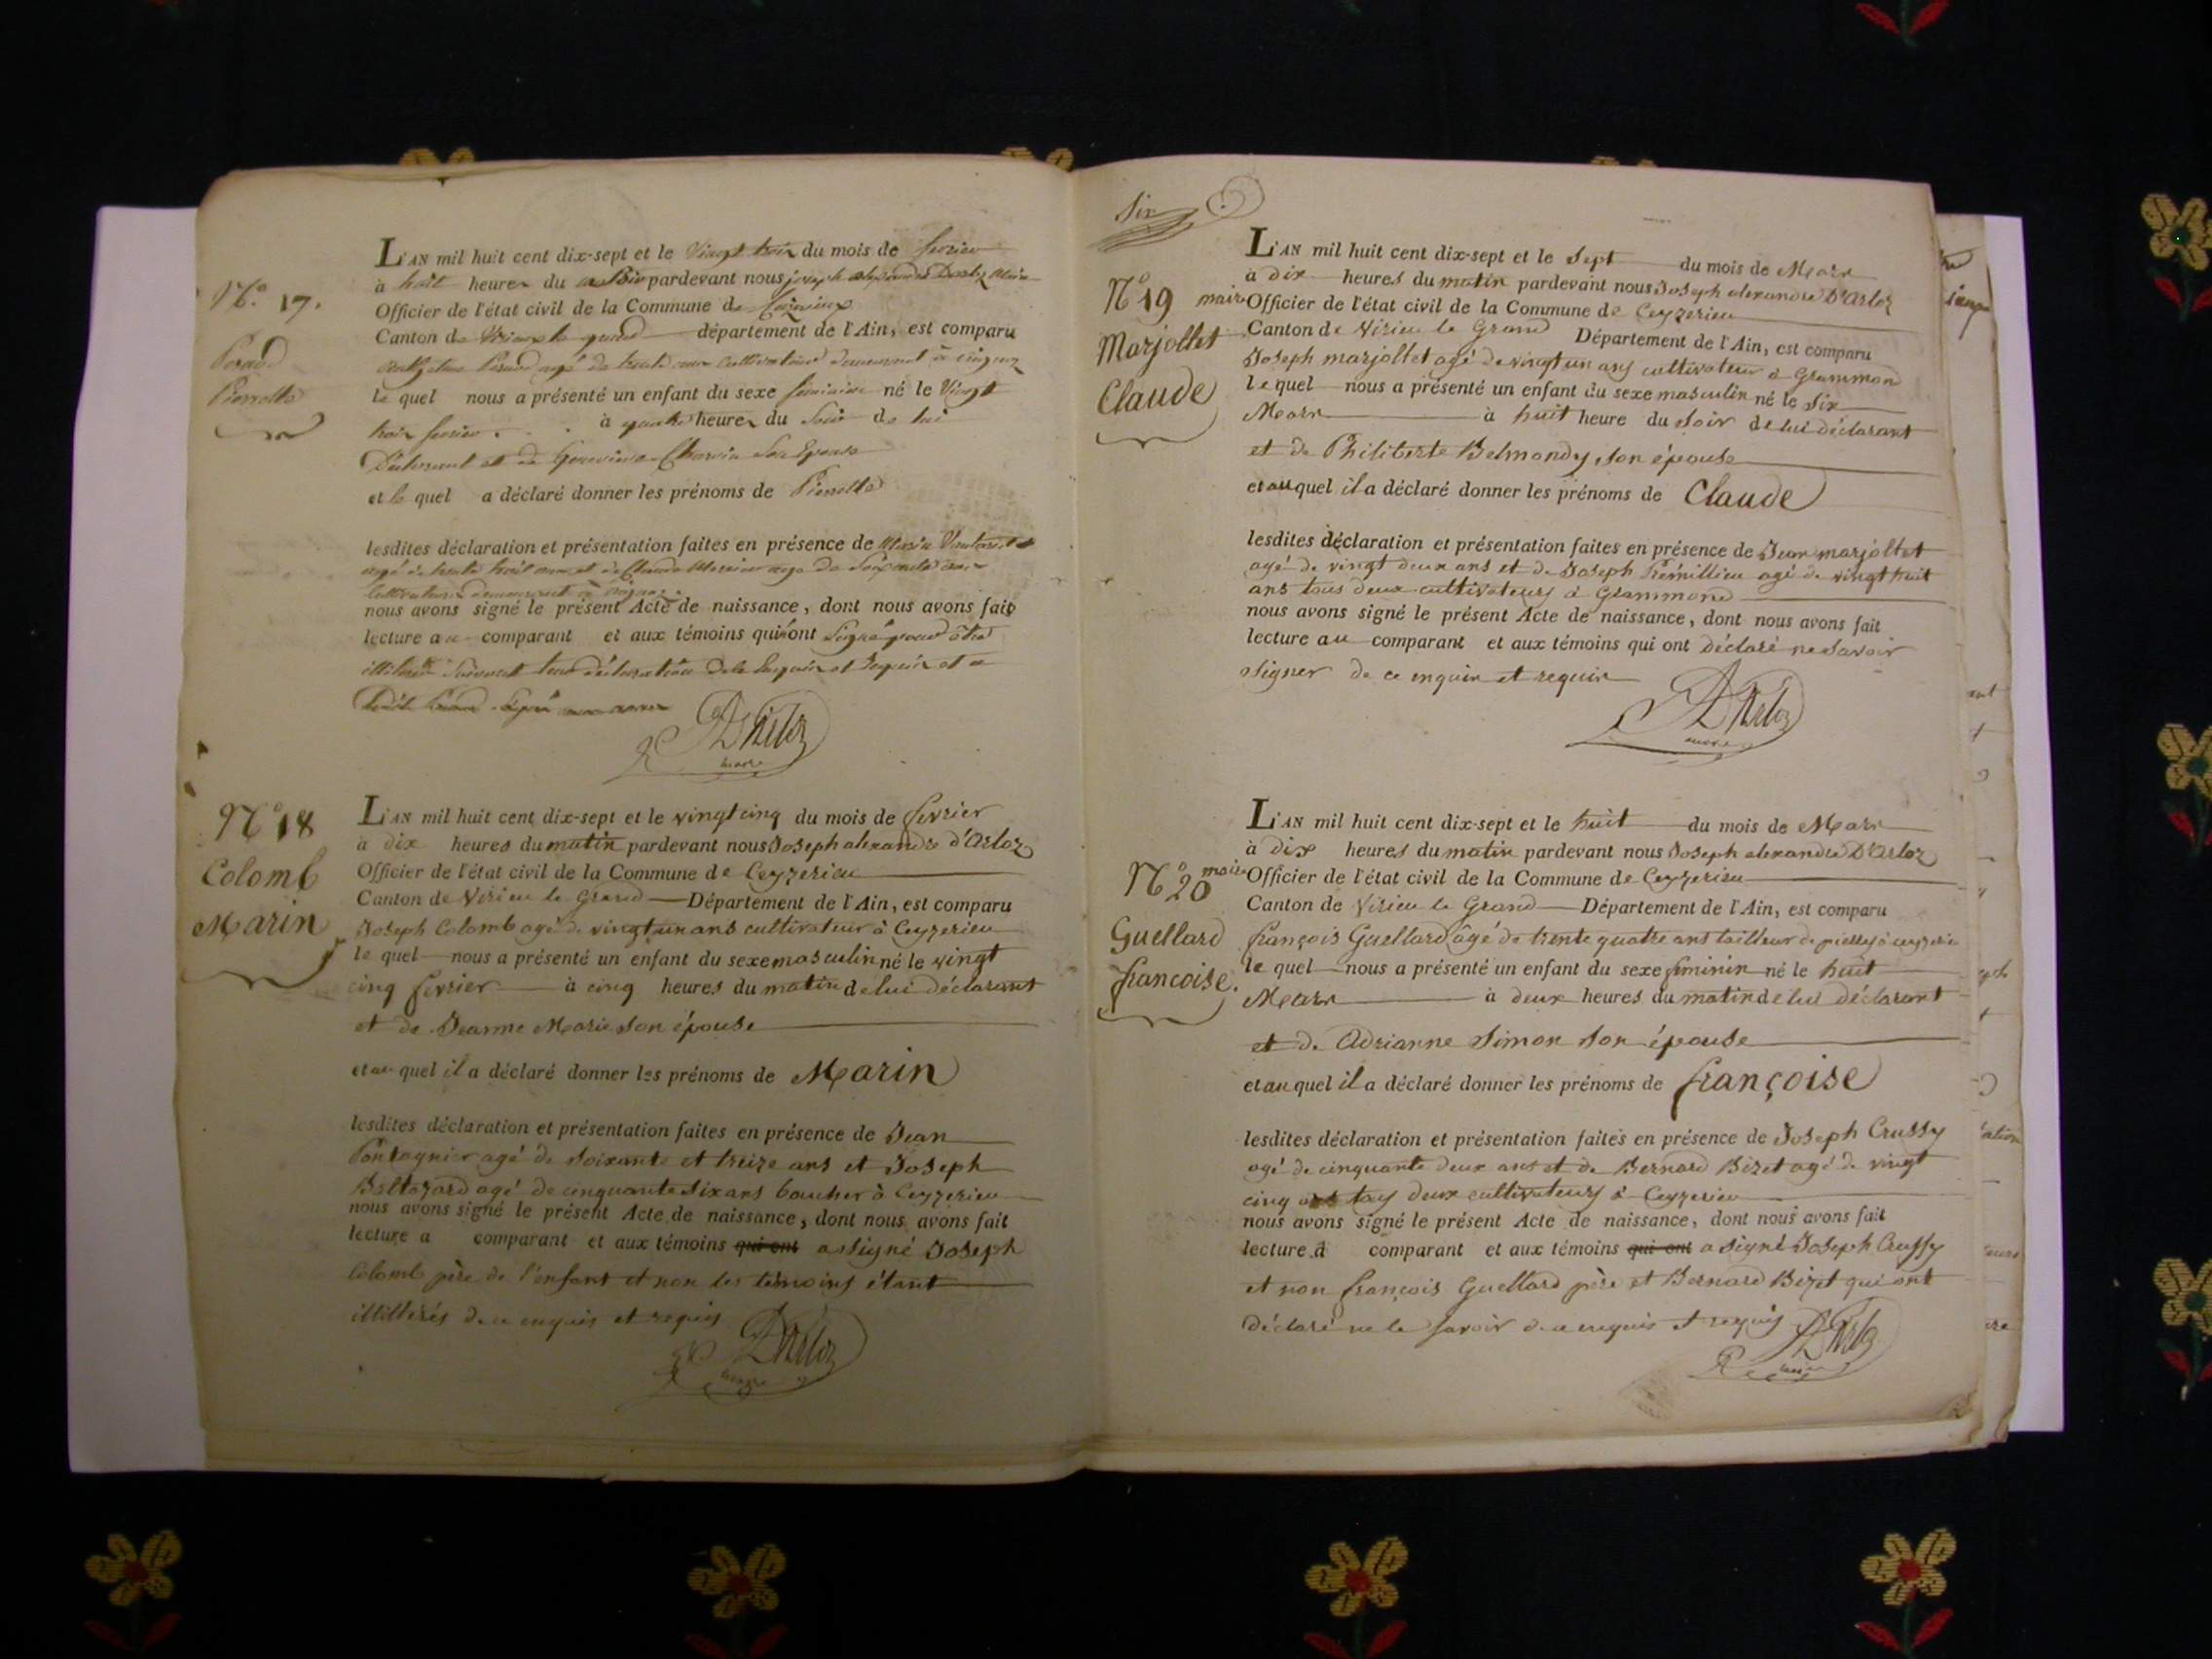 N.° 17.
Pierrette
L'AN mil huit cent dix-sept et le vingt trois du mois de fevrier
à huit heures du soir pardevant nous joseph alexandre Darloz Maire
Officier de l'état civil de la Commune de
Canton de Virieux le grand département de l'Ain, est comparu
agé de trente ans cultivateur demeurant à
le quel nous a présenté un enfant du sexe feminin né le Vingt
trois fevrier à quatre heures du Soir de lui
Déclarant et de Genevieve Charvin Son Epouse
et le quel a déclaré donner les prénoms de Pierrette
lesdites déclaration et présentation faites en présence de
agé de trente huit ans et de Claude Mercier age de Soixante
Cultivateurs demeurant à
nous avons signé le présent Acte de naissance, dont nous avons fait
lecture au comparant et aux témoins qui n'ont Signé pour être
illiteré Suivant leur déclaration de ce Enquis et Requis et a
DArloz
maire
N° 18
Colomb
Marin
L'AN mil huit cent dix-sept et le vingt cinq du mois de fevrier
à dix heures du matin pardevant nous Joseph alexandre d'Arloz
Officier de l'état civil de la Commune de Ceyzerieu
Canton de Virieu le Grand Département de l'Ain, est comparu
Joseph Colomb agé de vingt un ans cultivateur à Ceyzerieu
le quel nous a présenté un enfant du sexe masculin né le vingt
cinq fevrier à cinq heures du matin de lui déclarant
et de Jeanne Marie son épouse
et au quel il a déclaré donner les prénoms de Marin
lesdites déclaration et présentation faites en présence de Jean
Pontagnier agé de soixante et treize ans et Joseph
Baltazard agé de cinquante six ans boucher à Ceyzerieu
nous avons signé le présent Acte de naissance, dont nous avons fait
lecture a comparant et aux témoins qui ont a signé Joseph
Colomb père de l'enfant et non les témoins étant
illitterés de ce enquis et requis
DArloz
maire
Six
N° 19
Marjollet
Claude
L'AN mil huit cent dix-sept et le sept du mois de Mars
à dix heures du matin pardevant nous Joseph alexandre D'Arloz
maire Officier de l'état civil de la Commune de Ceyzerieu
Canton de Virieu le Grand Département de l'Ain, est comparu
Joseph marjollet agé de vingt un ans cultivateur à Grammon
le quel nous a présenté un enfant du sexe masculin né le six
Mars à huit heure du soir de lui déclarant
et de Philiberte Belmondy, son épouse
et au quel il a déclaré donner les prénoms de Claude
lesdites déclaration et présentation faites en présence de Jean marjollet
agé de vingt deux ans et de Joseph Trémillieu agé de vingt huit
ans tous deux cultivateurs à Grammond
nous avons signé le présent Acte de naissance, dont nous avons fait
lecture au comparant et aux témoins qui ont déclaré ne savoir
signer de ce enquis et requis
DArloz
maire
N° 20
Guellard
francoise.
L'AN mil huit cent dix-sept et le huit du mois de Mars
à dix heures du matin pardevant nous Joseph alexandre D'Arloz
maire Officier de l'état civil de la Commune de Ceyzerieu
Canton de Virieu le Grand Département de l'Ain, est comparu
françois Guellard âgé de trente quatre ans tailleur de pierres à ceyzerieu
le quel nous a présenté un enfant du sexe feminin né le huit
Mars à deux heures du matin de lui déclarant
et de Adrianne Simon son épouse
et au quel il a déclaré donner les prénoms de françoise
lesdites déclaration et présentation faites en présence de Joseph Crussy
agé de cinquante deux ans et de Bernard Bizet agé de vingt
cinq ans tous deux cultivateurs à Ceyzerieu
nous avons signé le présent Acte de naissance, dont nous avons fait
lecture à comparant et aux témoins qui ont a signé Joseph Crussy
et non françois Guellard père et Bernard Bizet qui ont
déclaré ne le savoir de ce enquis et requis
DArloz
maire